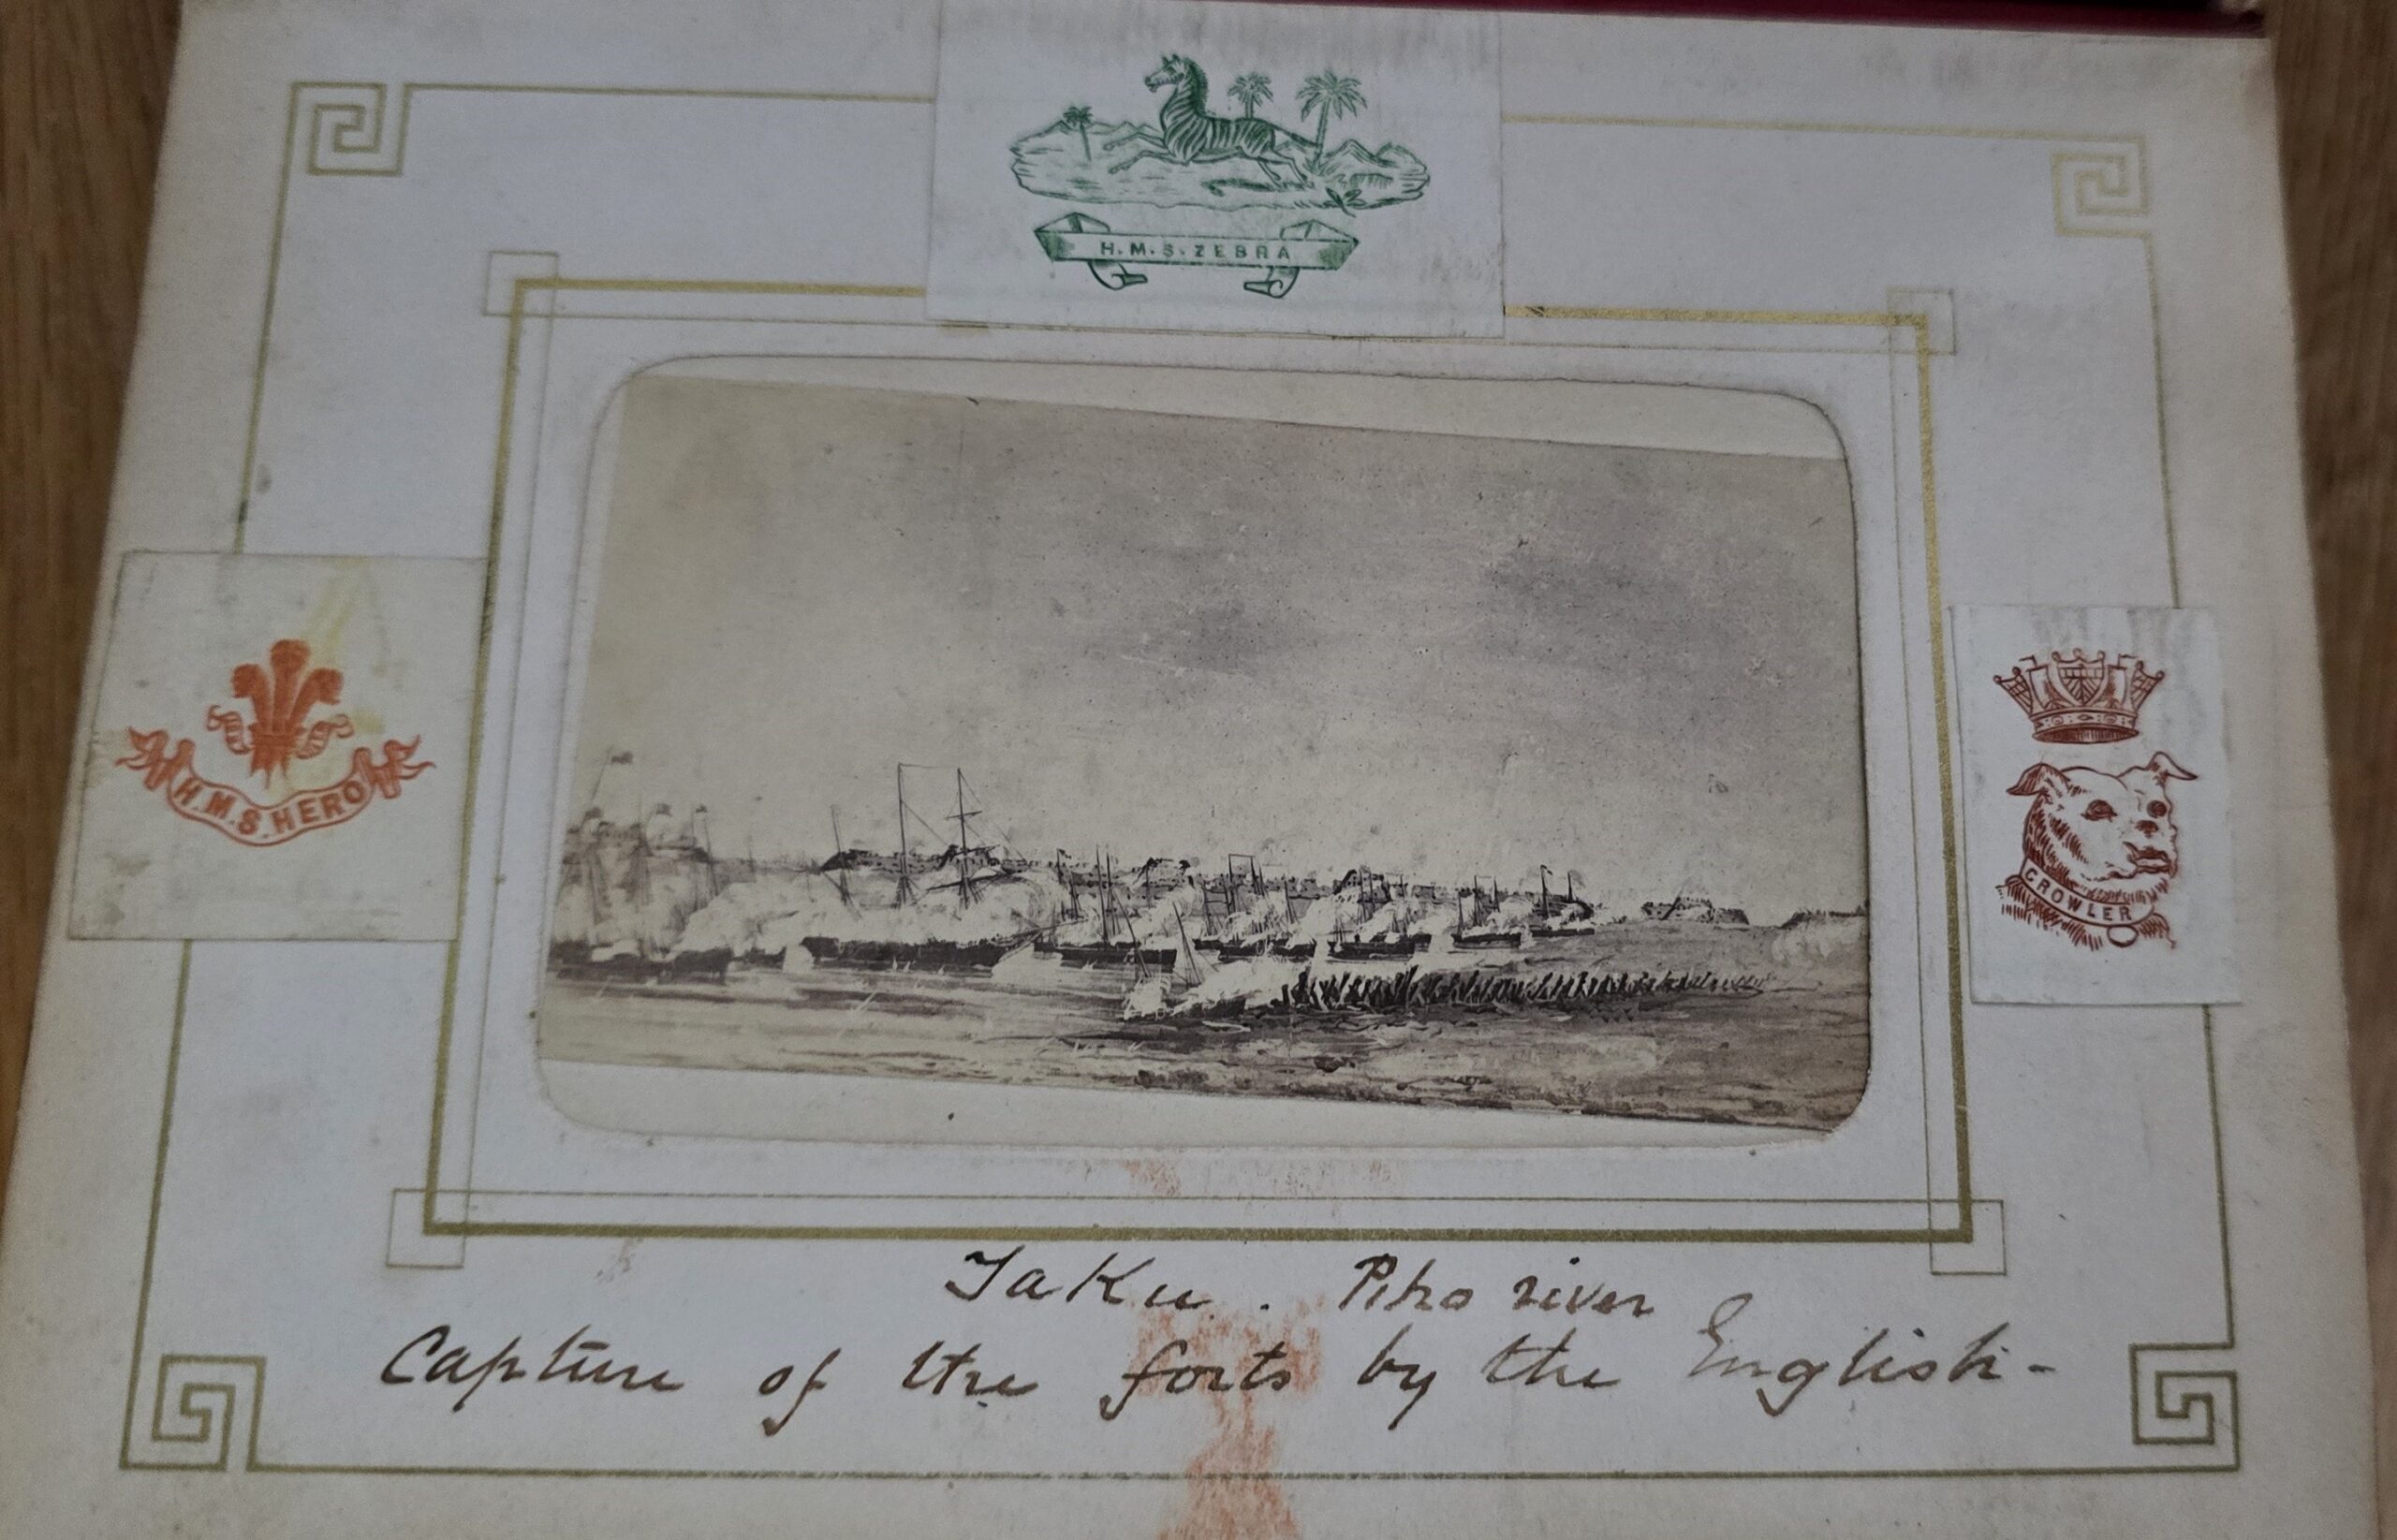 H.M.S. ZEBRA
H.M.S. HERO
GROWLER
Taku. Piho river
Capture of the forts by the English-